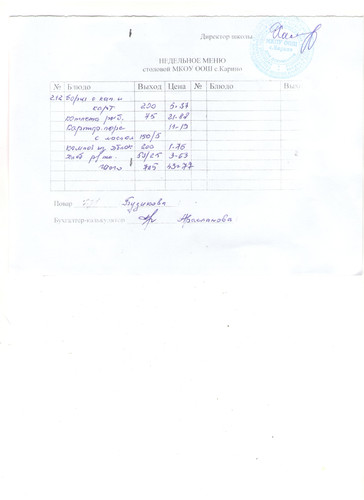 Директор школы
НЕДЕЛЬНОЕ МЕНЮ
столовой МКОУ ООШ с.Карино
№ Блюдо Выход Цена № Блюдо Вых
212 Борщ с кап. и
карт 250 5-37
котлета рыб. 75 21-88
Картоф. пюре 11-13
с маслом 150/5
компот из яблок 200 1-76
хлеб рж. 50/25 3-63
Итого 755 43-77
Повар Бузикова
Бухгалтер-калькулятор Арсланова